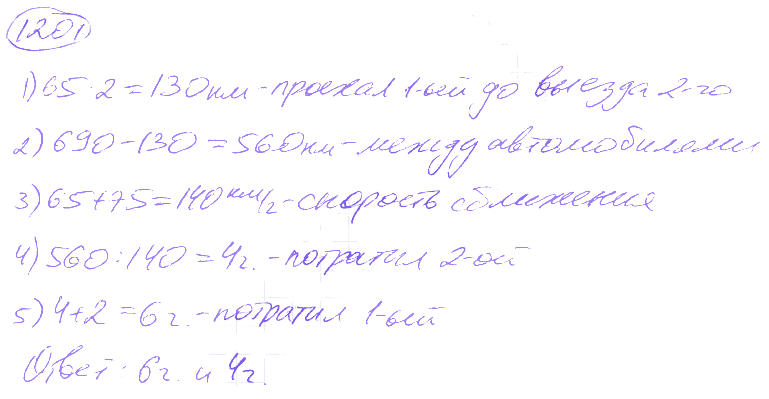 1201
1) 65·2=130км-проехал 1-ый до выезда 2-го
2) 690-130=560км-между автомобилями
3) 65+75=140км/г-скорость сближения
4) 560:140=4г.-потратил 2-ой
5) 4+2=6г.-потратил 1-ый
Ответ: 6г. и 4г.